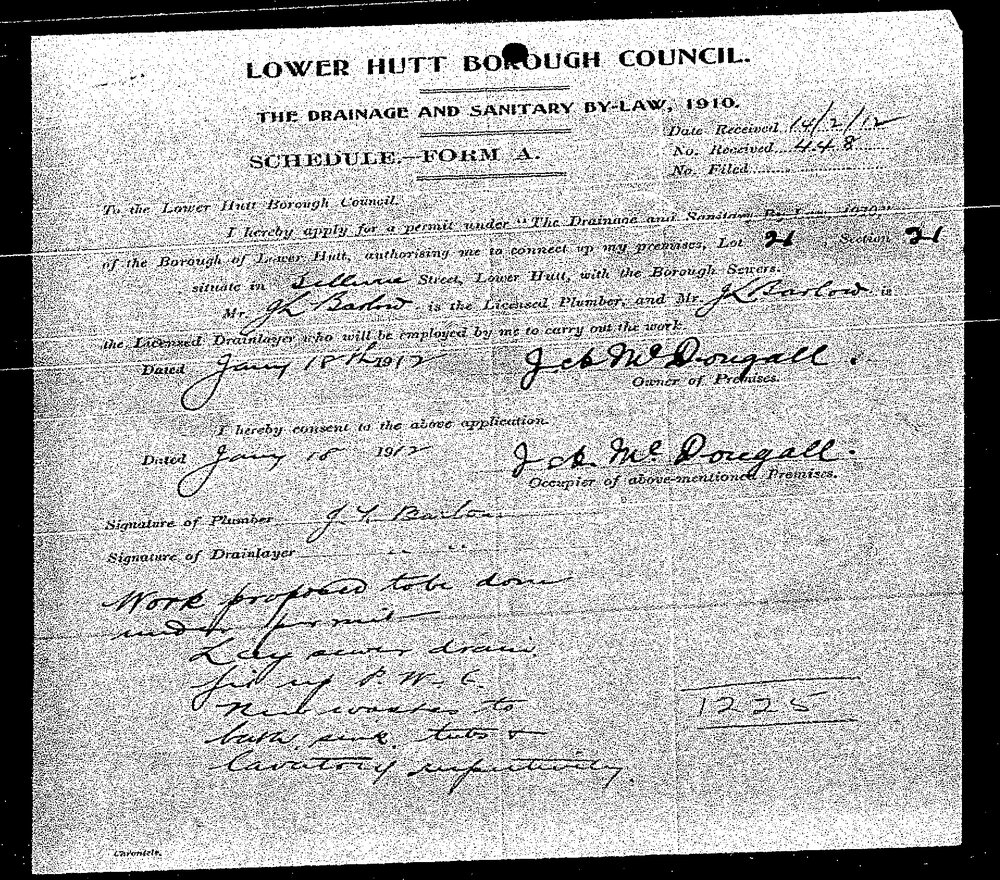 LOWER HUTT BOROUGH COUNCIL.
THE DRAINAGE AND SANITARY BY-LAW, 1910.
Date Received 14/2/12
SCHEDULE.—FORM A.
No. Received 448
No. Filed
To the Lower Hutt Borough Council.
I hereby apply for a permit under "The Drainage and Sanitary By-Law, 1910,"
of the Borough of Lower Hutt, authorising me to connect up my premises, Lot 21 Section 31
situate in Street, Lower Hutt, with the Borough Sewers.
Mr. J L Barlow is the Licensed Plumber, and Mr. J L Barlow is
the Licensed Drainlayer who will be employed by me to carry out the work.
Dated Jany 18th 1912
McDougall.
Owner of Premises.
I hereby consent to the above application.
Dated Jany 18 1912
McDougall.
Occupier of above-mentioned Premises.
Signature of Plumber J. L. Barlow
Signature of Drainlayer " "
Work proposed to be done
under permit
Lay sewer drain
Fix up P. W. C.
New wastes to
bath, sink, tubs &
lavatory respectively.
1225
Chronicle.